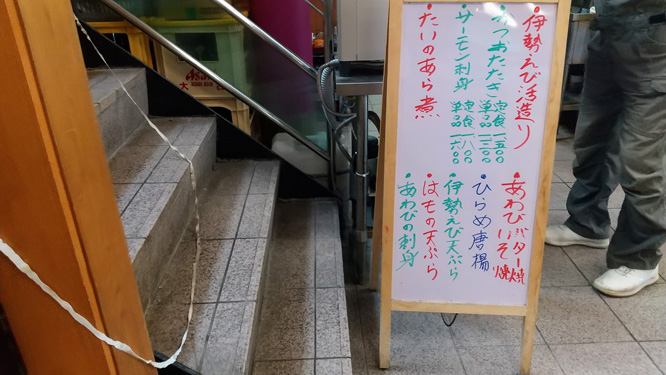 伊勢えび活造り
かつおたたき 定食 一五〇〇
単品 一三〇〇
サーモン刺身 定食 一八〇〇
単品 一六〇〇
たいのあら煮
あわびバター焼
みそ焼
ひらめ唐揚
伊勢えび天ぷら
はもの天ぷら
あわびの刺身
Asahi